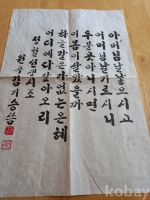 아버님 날 낳으시고
어머님 날 기르시니
두 분 곧 아니시면
이 몸이 살았을까
하늘같은 가 없는 은혜
어디에다 갚아오리
정철 선생 시조
kobay